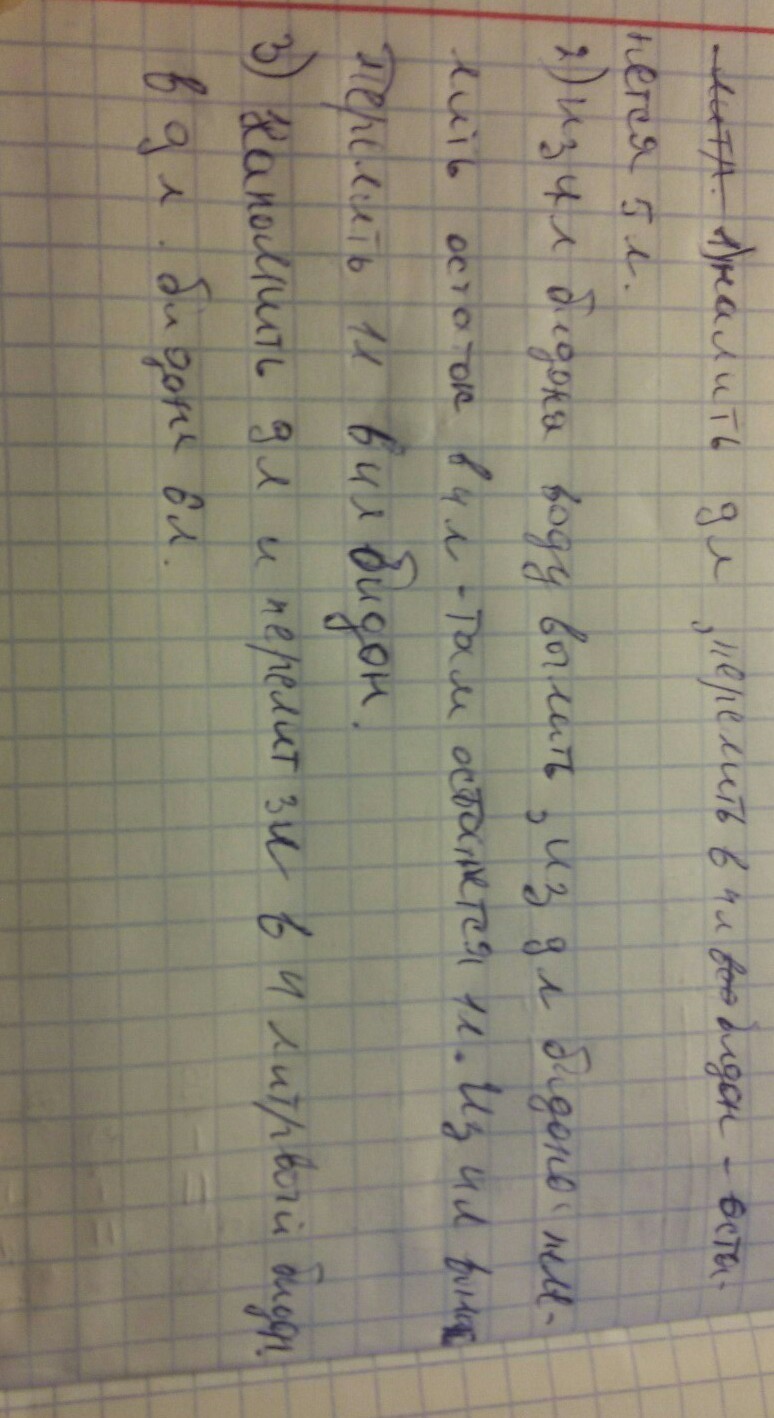 1) налить 9 л, перелить в 4 л бидон - оста-
нется 5 л.
2) Из 4 л бидона воду вылить, из 9 л бидона пере-
лить остаток в 4 л - там останется 1 л. Из 4 л
перелить 1 л в 4 л бидон.
3) Наполнить 9 л и перелит 3 л в 4 литрвый бидон
в 9 л. бидоне 6 л.